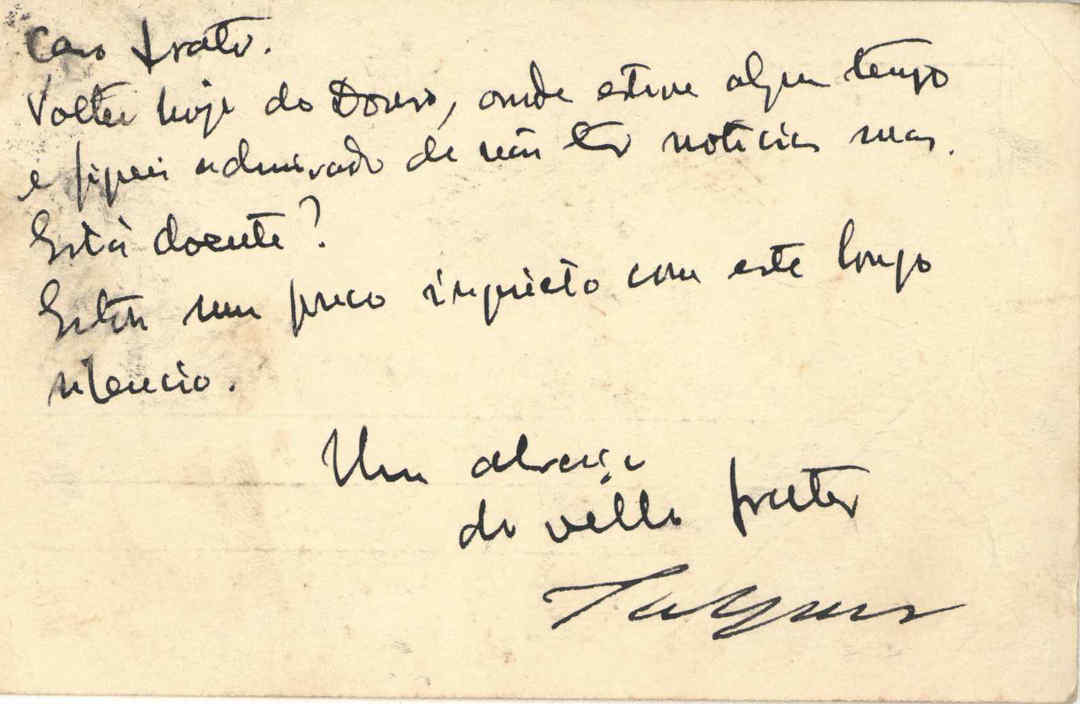 Caro frater.
Voltei hoje do Douro, onde estive algum tempo
e fiquei admirado de não ter notícias suas.
Está doente?
Estou um pouco inquieto com este longo
silencio.
Um abraço
do velho frater